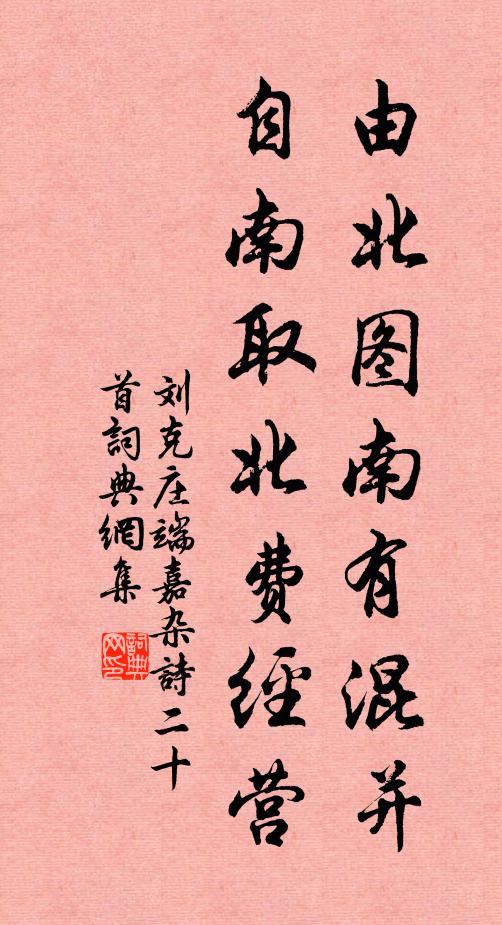 由北图南有混并
自南取北费經营
刘克庄端嘉杂詩二十
首詞典網集
詞典網印